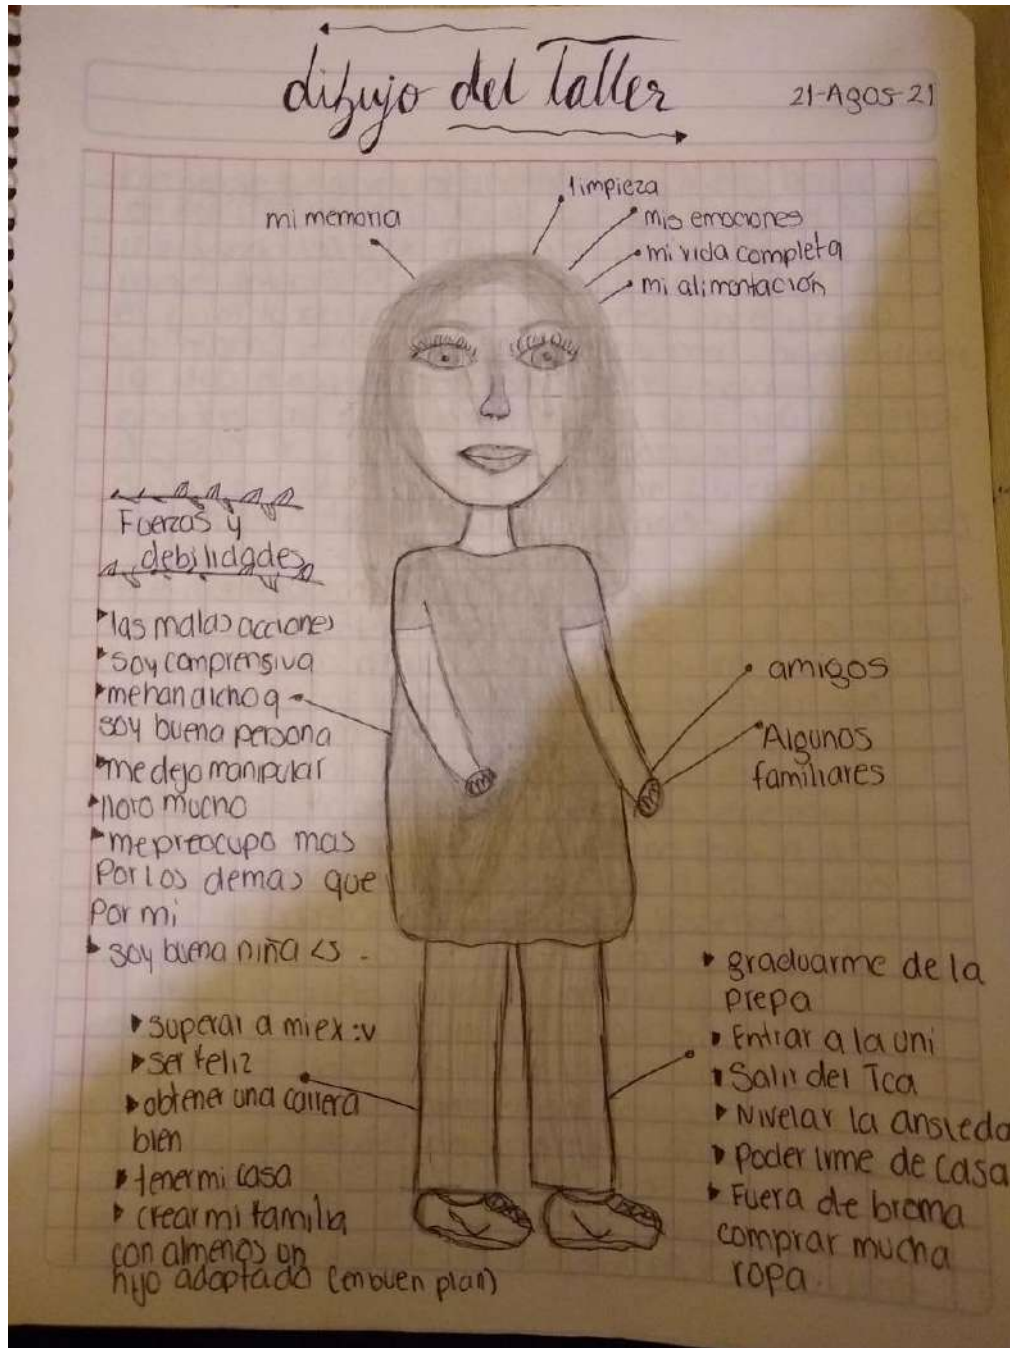 dibujo del Taller
21-Agos-21
mi memoria
limpieza
mis emociones
mi vida completa
mi alimentación
Fuerzas y
debilidades
las malas acciones
soy comprensiva
me han dicho q
soy buena persona
me dejo manipular
lloro mucho
me preocupo mas
Por los demas que
Por mi
soy buena niña <3 .
amigos
Algunos
familiares
superar a mi ex :v
ser feliz
obtener una carrera
bien
tener mi casa
crear mi familia
con almenos un
hijo adoptado (en buen plan)
graduarme de la
prepa
Entrar a la uni
Salir del Tca
Nivelar la ansieda
Poder irme de casa
Fuera de broma
comprar mucha
ropa.